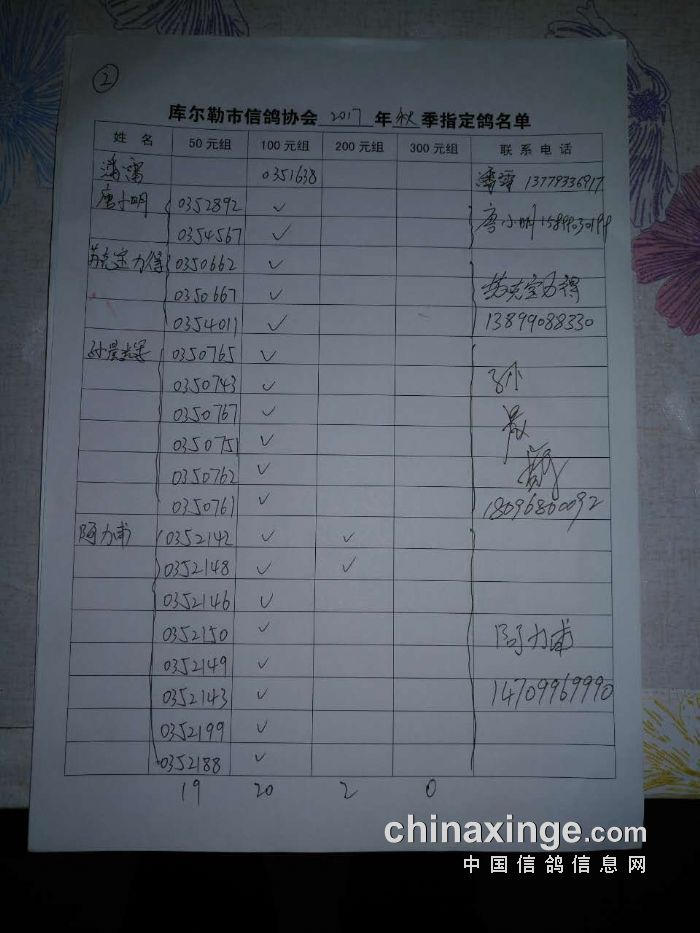 ②
库尔勒市信鸽协会 2017 年 秋 季指定鸽名单
姓 名 50元组 100元组 200元组 300元组 联系电话
潘 0351638 潘 13779336917
唐小明 0352892 ✓ 唐小明
0354567 ✓
苏克宝力得 0350662 ✓
0350667 ✓ 苏克宝力得
0354011 ✓ 13899088330
孙晨 0350765 ✓
0350743 ✓ 孙
0350767 ✓ 晨
0350751 ✓
0350762 ✓
0350761 ✓ 18096800092
阿力甫 0352142 ✓ ✓
0352148 ✓ ✓
0352146 ✓
0352150 ✓ 阿力甫
0352149 ✓
0352143 ✓ 14709969990
0352199 ✓
0352188 ✓
19 20 2 0
chinaxinge.com
中国信鸽信息网